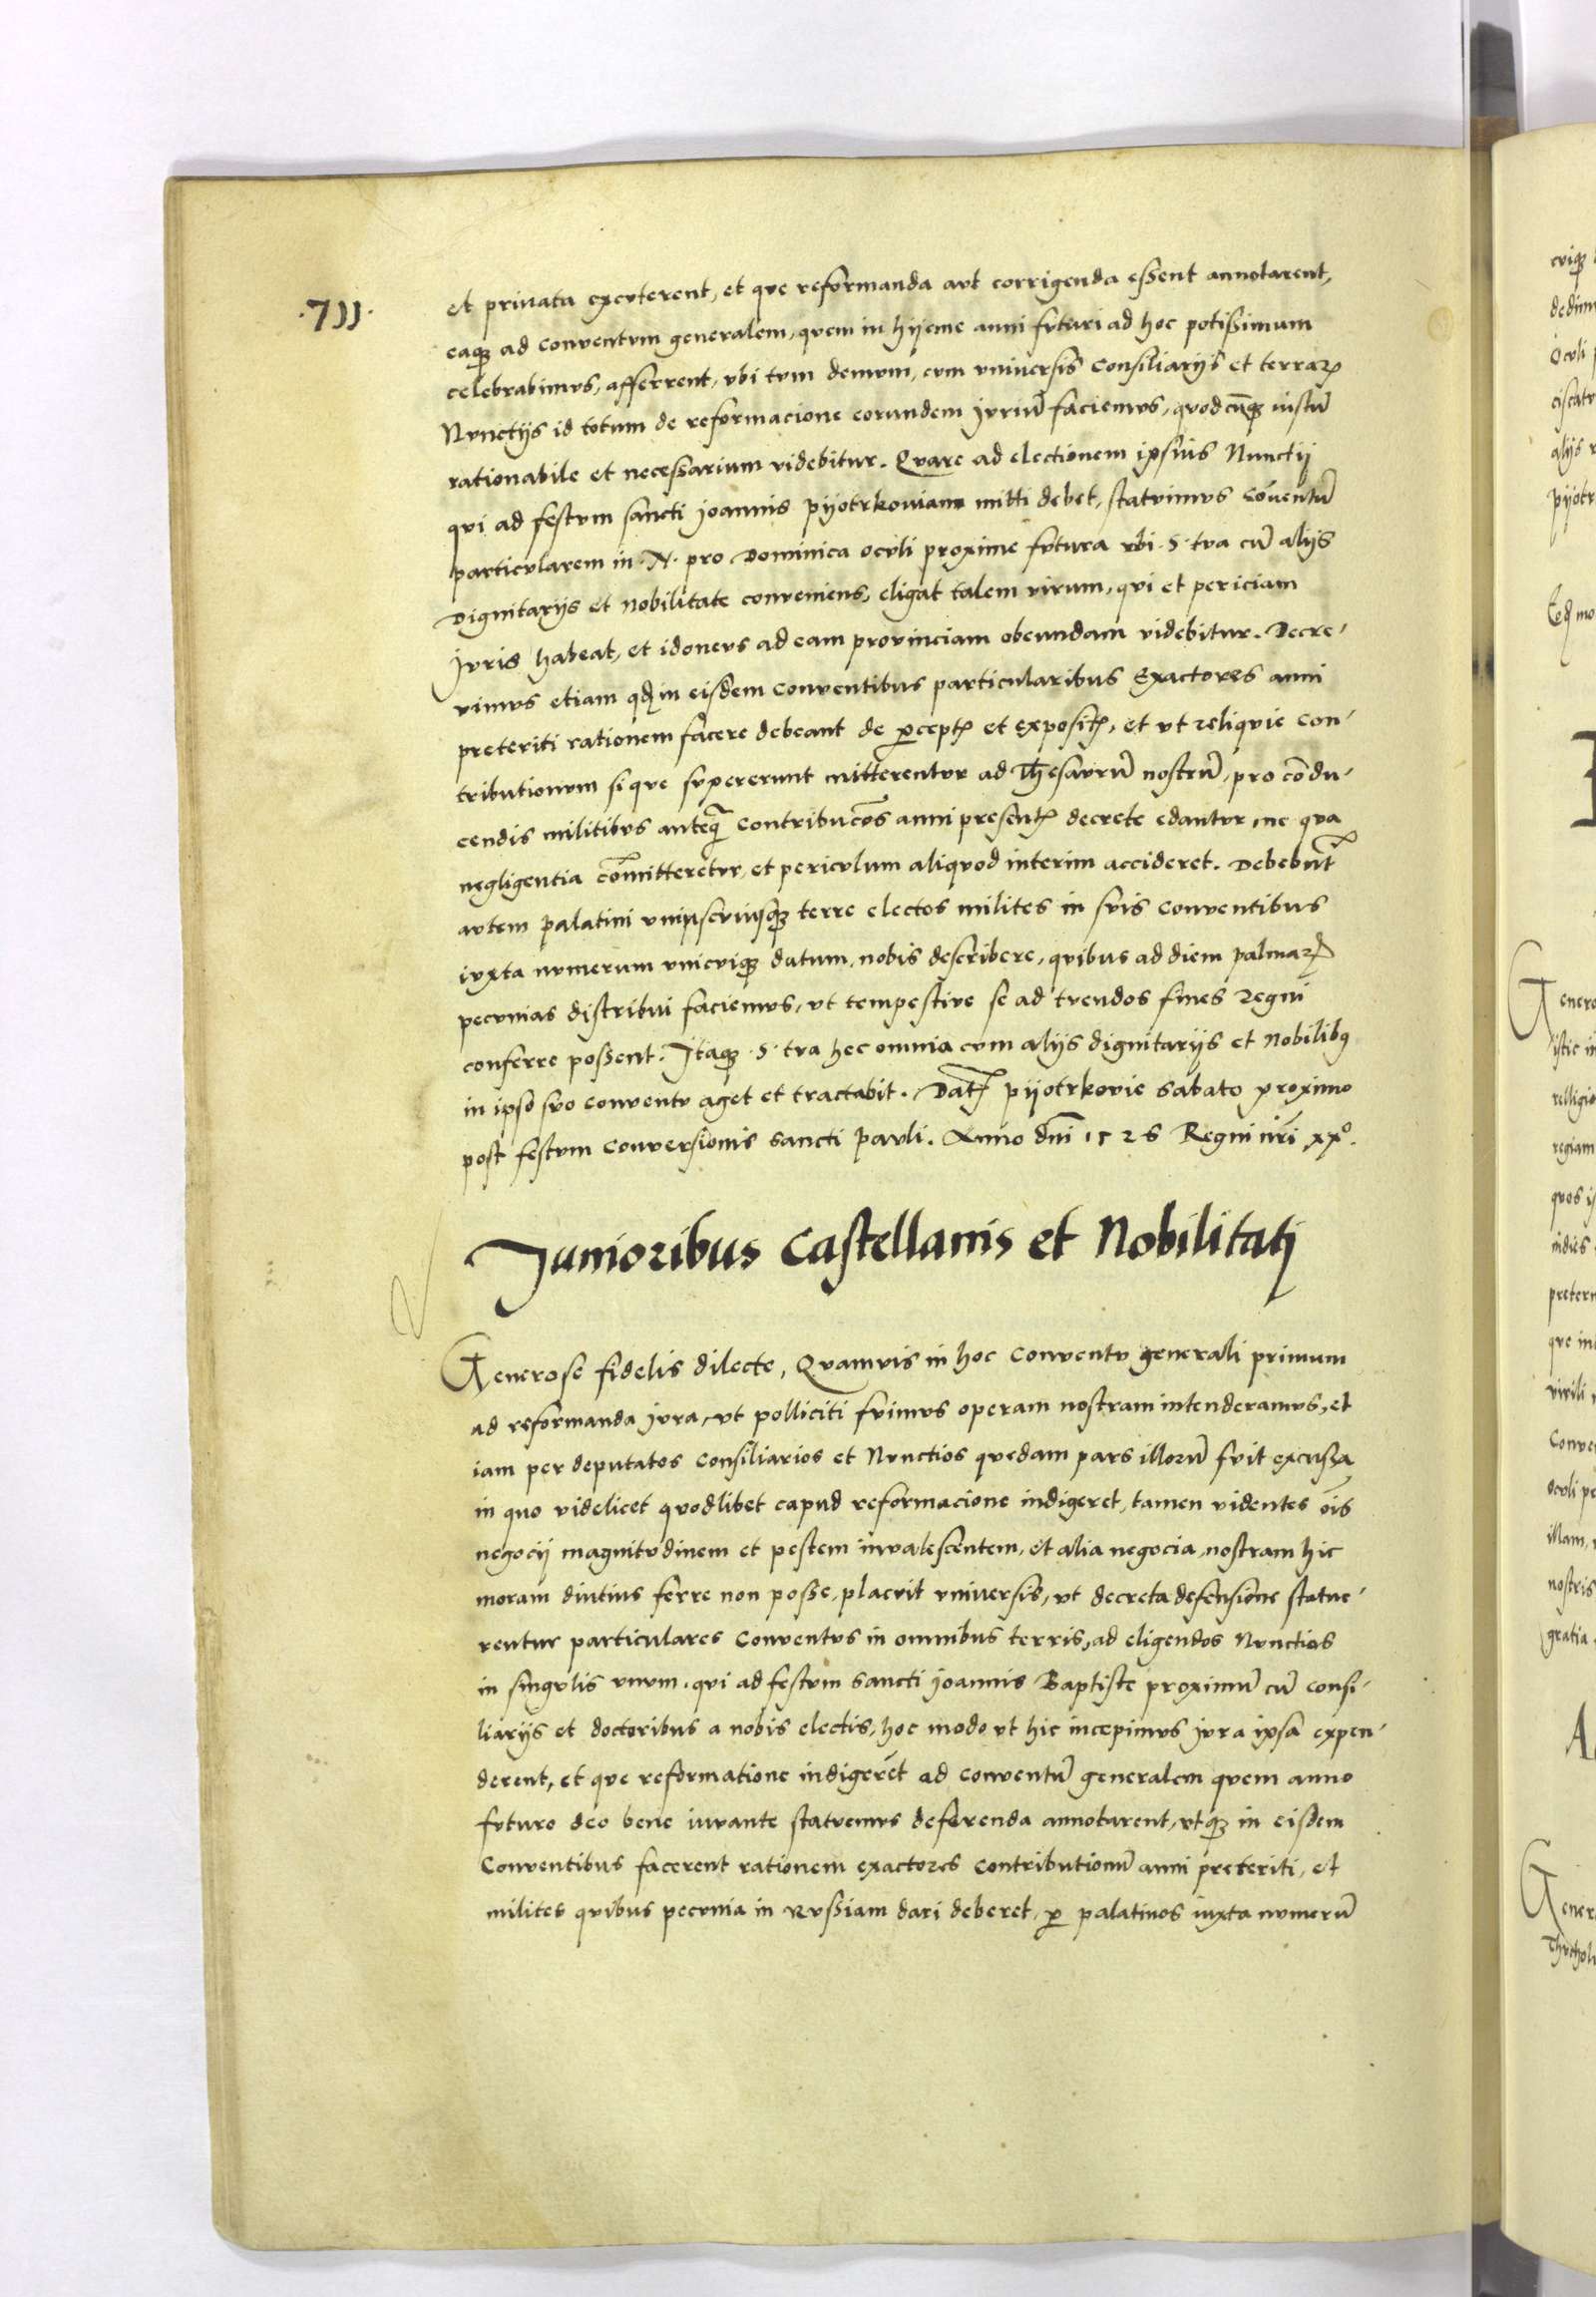 .711.
et privata excuterent, et que reformanda aut corrigenda essent annotarent,
eaq3 ad conventum generalem, quem in hyeme anni futuri ad hoc potissimum
celebrabimus, afferrent, ubi tum demum, cum universis consiliarijs et terrarꝝ
Nunctijs id totum de reformacione eorundem juriū faciemus, quodcūq3 iustū
rationabile et necessarium videbitur. Quare ad electionem ipsius Nunctij
qui ad festum sancti joannis pijotrkoviam mitti debet, statuimus cōventū
particularem in .N. pro Dominica oculi proxime futura ubi .S. tua cū alijs
Dignitarijs et nobilitate conveniens, eligat talem virum, qui et periciam
juris habeat, et idoneus ad eam provinciam obeundam videbitur. Decre-
vimus etiam qđ in eisdem conventibus particularibus Exactores anni
preteriti rationem facere debeant de ꝑceptꝭ et expositꝭ, et ut reliquie con-
tributionum sique supererunt mitterentur ad Thesaurū nostrū, pro condu-
cendis militibus anteq̄ contribucōes anni presentꝭ decrete edantur, ne qua
negligentia cōmitteretur, et periculum aliquod interim accideret. Debebūt
autem palatini uniuscuiusq3 terre electos milites in suis conventibus
iuxta numerum unicuiq3 datum, nobis describere, quibus ad diem palmarꝝ
pecunias distribui faciemus, ut tempestive se ad tuendos fines Regni
conferre possent. Itaq3 .S. tua hec omnia cum alijs dignitarijs et Nobilibꝰ
in ipso suo conventu aget et tractabit. Datꝭ pijotrkovie sabato proximo
post festum conversionis sancti pauli. Anno dn̄i 1526 Regni nr̄i xxº.
Junioribus Castellanis et Nobilitatj
Generose fidelis dilecte, Quamvis in hoc conventu generali primum
ad reformanda jura, ut polliciti fuimus operam nostram intenderamus, et
iam per deputatos consiliarios et Nunctios quedam pars illorū fuit excussa
in quo videlicet quodlibet capud reformacione indigeret, tamen videntes oīs
negocij magnitudinem et pestem invalescentem, et alia negocia, nostram hic
moram diutius ferre non posse, placuit universis, ut decreta defensione statue-
rentur particulares Conventus in omnibus terris, ad eligendos Nunctios
in singulis unum, qui ad festum sancti joannis Baptiste proximū cū consi-
liarijs et doctoribus a nobis electis, hoc modo ut hic incepimus jura ipsa expen-
derent, et que reformatione indigerēt ad conventū generalem quem anno
futuro deo bene iuvante statuemus deferenda annotarent, utq3 in eisdem
Conventibus facerent rationem exactores contributionū anni preteriti, et
milites quibus pecunia in Russiam dari deberet, ꝑ palatinos iuxta numerū